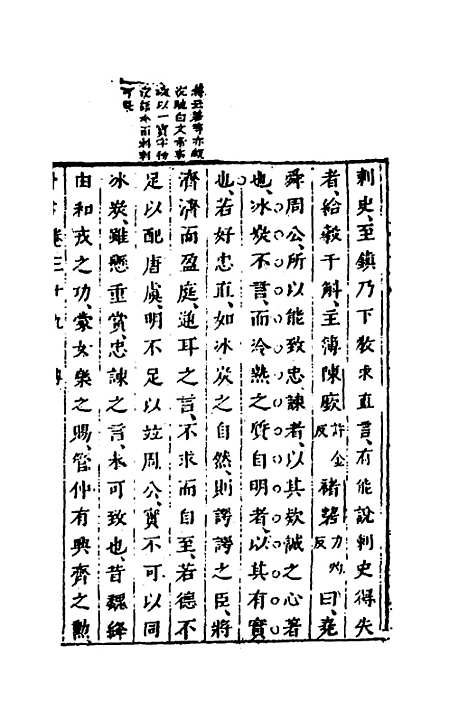 刺史至鎮乃下教求直言有能說刺史得失
者給穀千斛主簿陳廞許金反褚䂮力灼反曰堯
舜周公所以能致忠諫者以其欵誠之心著
也冰炭不言而冷熱之質自明者以其有實
也若好忠直如冰炭之自然則諤諤之臣將
濟濟而盈庭逆耳之言不求而自至若德不
足以配唐虞明不足以竝周公實不可以同
冰炭雖懸重賞忠諫之言未可致也昔魏絳
由和戎之功蒙女樂之賜管仲有興齊之勲
卷三十九